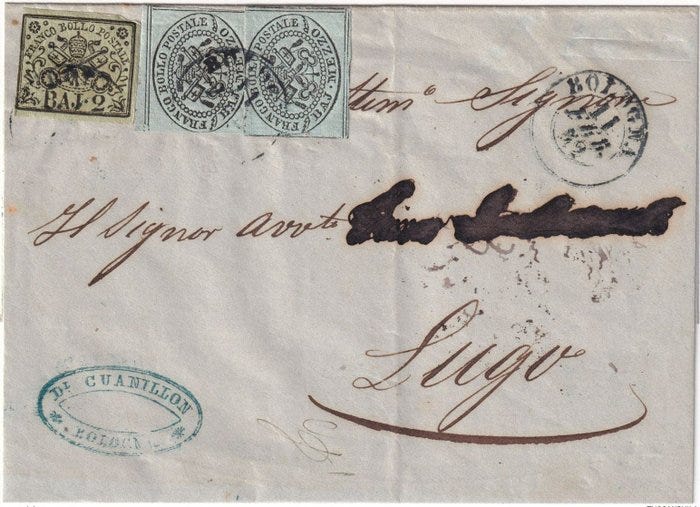 FRANCO BOLLO POSTALE
BAJ. 2
FRANCO BOLLO POSTALE
MEZZO BAJ.
FRANCO BOLLO POSTALE
MEZZO BAJ.
Signor
BOLOGNA
11
FEB
Il Signor Avvto
Lugo
D. CUANILLON
BOLOGNA